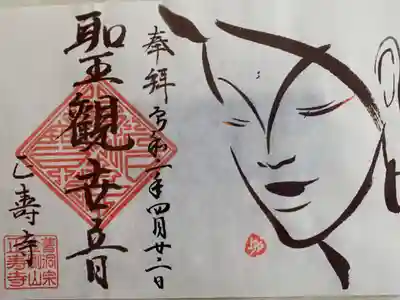 奉拝
令和二年四月廿二日
聖観世音
正壽寺
曹洞宗
正壽寺